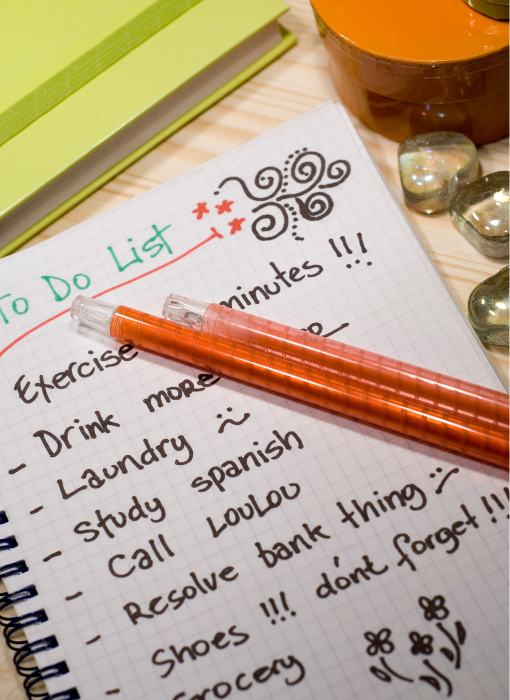 To Do List
Exercise minutes !!!
- Drink more
- Laundry
- Study spanish
- Call LOULOU
- Resolve bank thing
- Shoes !!! dón't forget !!!
- Grocery